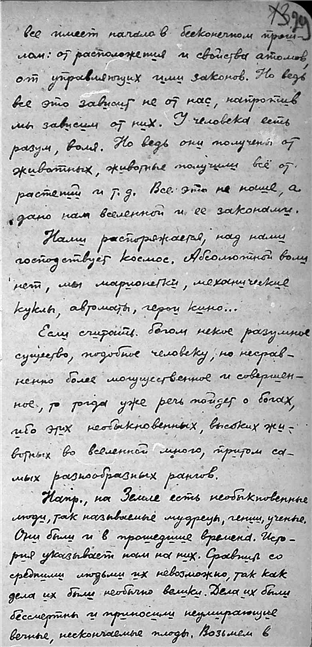 все имеет начало в бесконечном прош-
лом: от расположения и свойства атомов,
от управляющих ими законов. Но ведь
все это зависит не от нас, напротив
мы зависим от них. У человека есть
разум, воля. Но ведь они получены от
животных, животные получили всё от
растений и т.д. Все это не наше, а
дано нам вселенной и ее законами.
Нами распоряжается, над нами
господствует Космос. Абсолютной воли
нет, мы марионетки, механические
куклы, автоматы, герои кино...
Если считать богом некое разумное
существо, подобное человеку, но несрав-
ненно более могущественное и совершен-
ное, то тогда уже речь пойдет о богах,
ибо этих необыкновенных, высоких жи-
вотных во вселенной много, притом са-
мых разнообразных рангов.
Напр., на Земле есть необыкновенные
люди, так называемые мудрецы, гении, ученые.
Они были и в прошедшие времена. Исто-
рия указывает нам на них. Сравнить со
средними людьми их невозможно, так как
дела их были необычно велики. Дела их были
бессмертны и приносили неумирающие
вечные, нескончаемые плоды. Возьмем в